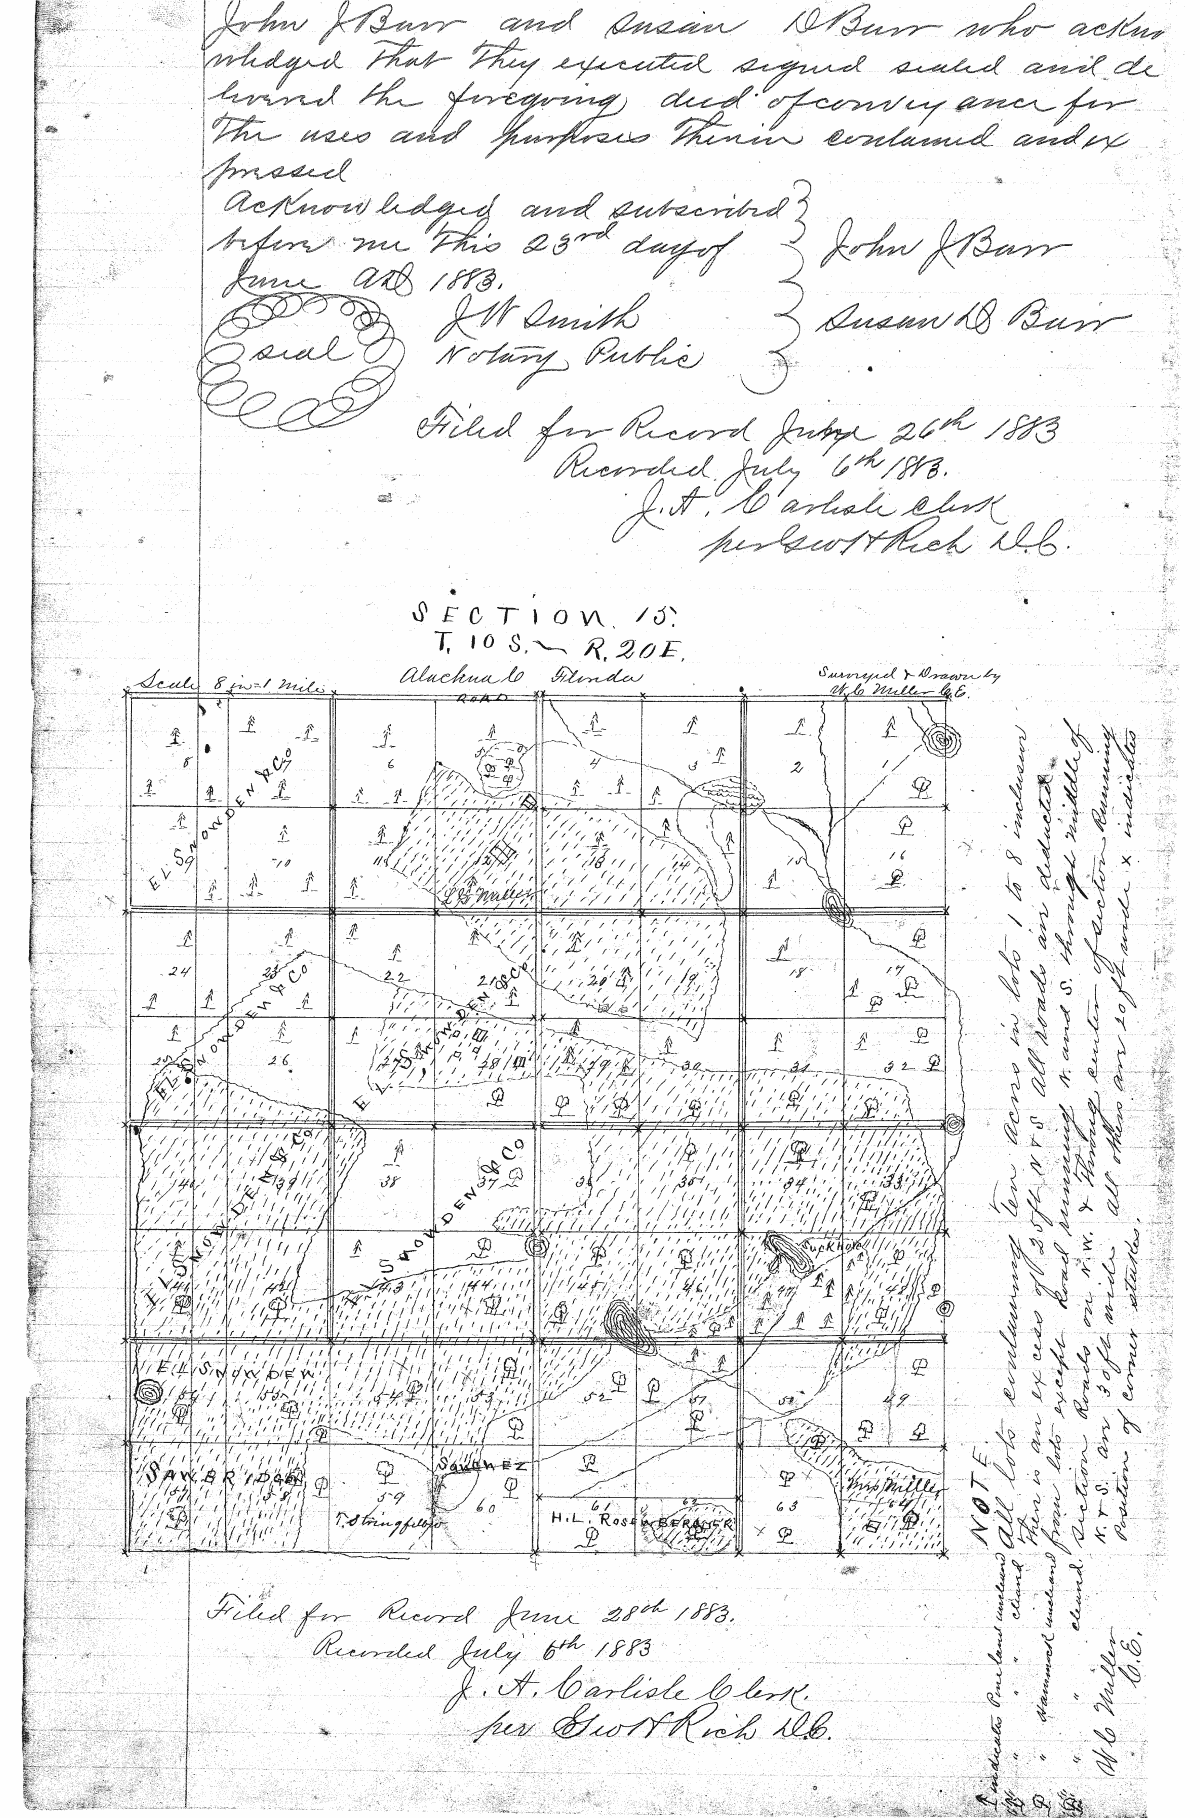 John J Burr and Susan D Burr who ackno
wledged that they executed signed sealed and de
livered the foregoing deed of conveyance for
the uses and purposes therein contained and ex
pressed
Acknowledged and subscribed
before me this 23rd day of
June AD 1883.
John J Burr
Susan D Burr
seal
J W Smith
Notary Public
Filed for Record June 26th 1883
Recorded July 6th 1883.
J. A. Carlisle Clerk
per Geo H Rich D.C.
SECTION. 15.
T. 10 S. ~ R. 20 E.
Scale 8 in = 1 Mile
Alachua Co Florida
Surveyed & Drawn by
W C Miller C.E.
ROAD
8 7 6 4 3 2 1
E L SNOWDEN & Co
9 10 11 12 13 14 15 16
Miller
24 23 22 21 20 19 18 17
E L SNOWDEN & Co
E L SNOWDEN & Co
25 26 27 28 29 30 31 32
40 39 38 37 36 35 34 33
E L SNOWDEN & Co
E L SNOWDEN & Co
Suckhole
41 42 43 44 45 46 47 48
E L SNOWDEN
56 55 54 53 52 51 50 49
SAWBRIDGE
SANCHEZ
57 58 59 60 61 62 63 64
T. Stringfellow
H. L. ROSENBERGER
Miller
NOTE
All lots containing ten acres in lots 1 to 8 inclusive
there is an excess of 25ft N & S All roads are deducted
from lots except Road running N. and S. through middle of
Section Roads on N. W. & through center of section Running
N. & S. are 30ft wide all others are 20ft wide x indicates
Position of corner stakes.
indicates Pine land uncleared
" " cleared
" Hammock uncleared
" " cleared
W C Miller
C.E.
Filed for Record June 28th 1883.
Recorded July 6th 1883
J. A. Carlisle Clerk.
per Geo H Rich D.C.